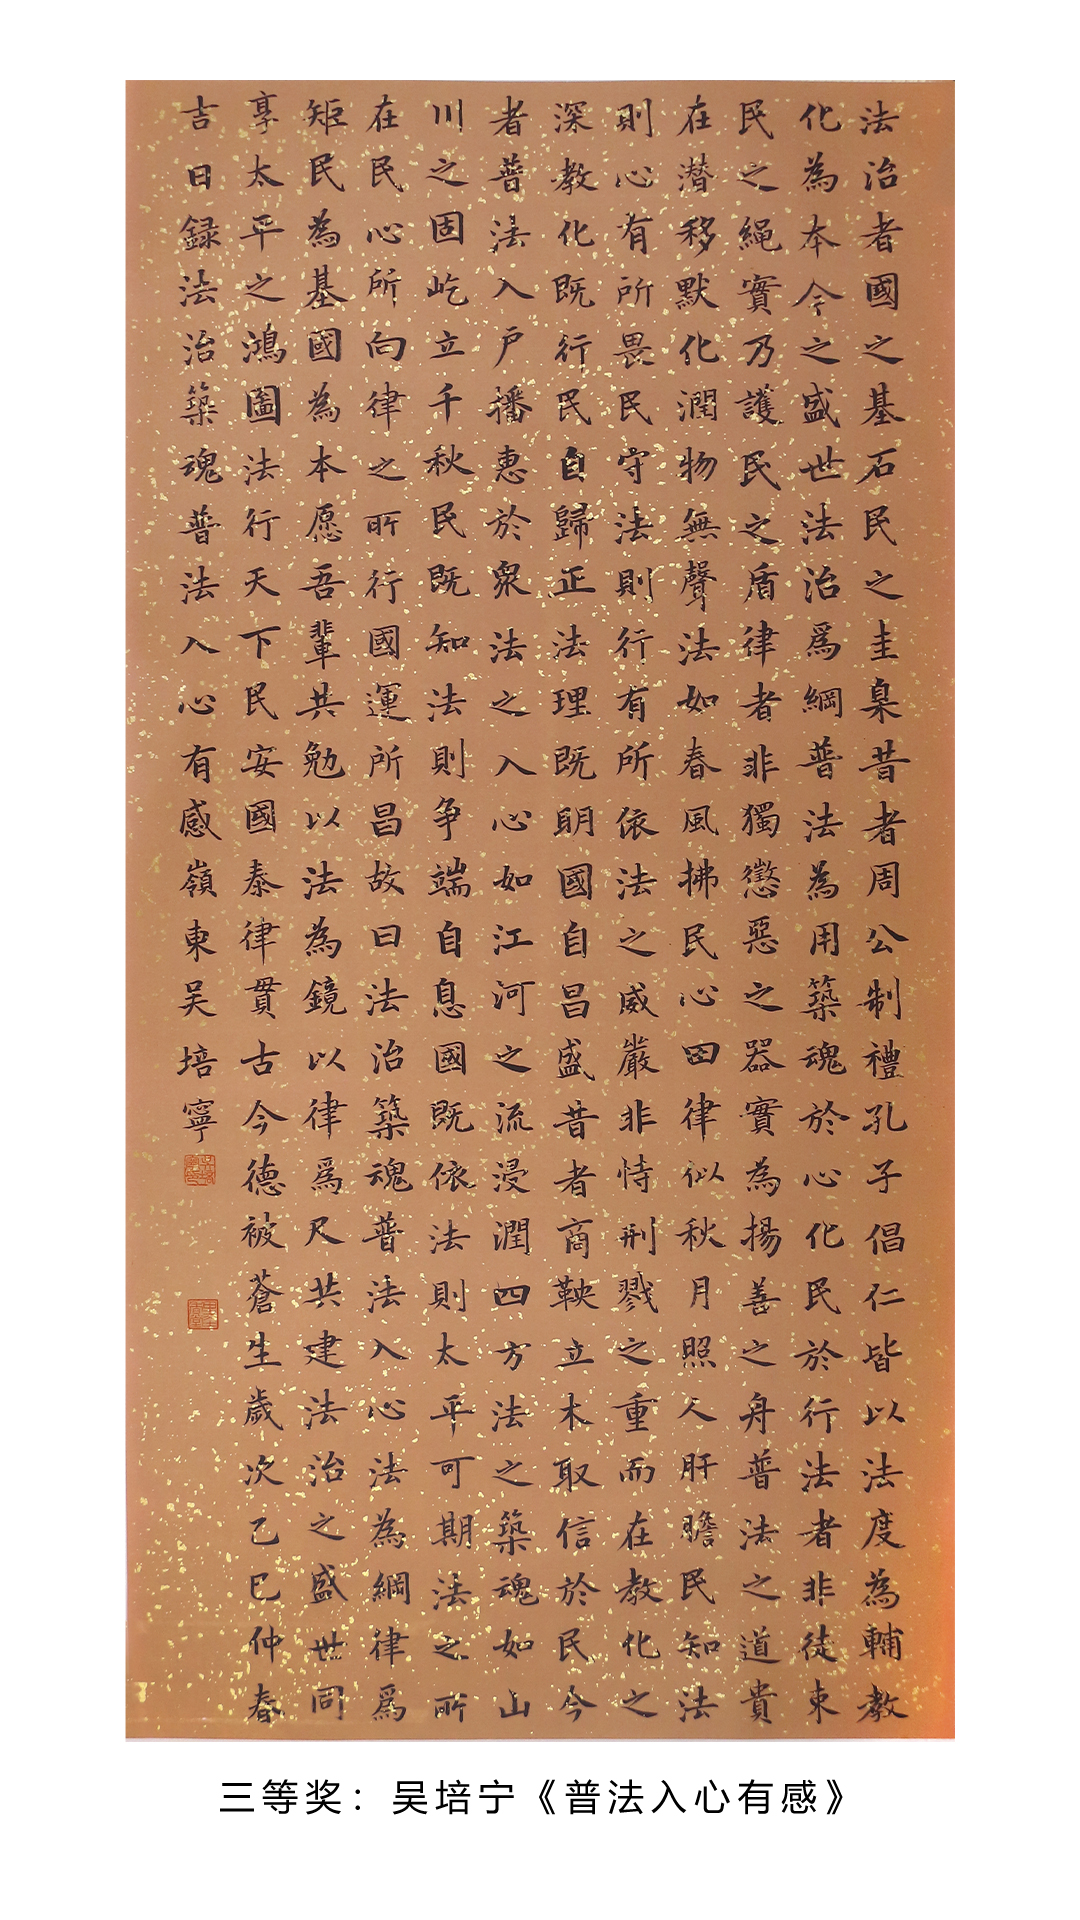 法治者國之基石民之圭臬昔者周公制禮孔子倡仁皆以法度為輔教
化為本今之盛世法治爲綱普法為用築魂於心化民於行法者非徒束
民之繩實乃護民之盾律者非獨懲惡之器實為揚善之舟普法之道貴
在潜移默化潤物無聲法如春風拂民心田律似秋月照人肝膽民知法
則心有所畏民守法則行有所依法之威嚴非恃刑戮之重而在教化之
深教化既行民自歸正法理既明國自昌盛昔者商鞅立木取信於民今
者普法入户播惠於衆法之入心如江河之流浸潤四方法之築魂如山
川之固屹立千秋民既知法則争端自息國既依法則太平可期法之所
在民心所向律之所行國運所昌故曰法治築魂普法入心法為綱律爲
矩民為基國為本愿吾輩共勉以法為鏡以律爲尺共建法治之盛世同
享太平之鴻圖法行天下民安國泰律貫古今德被蒼生歲次乙巳仲春
吉日録法治築魂普法入心有感嶺東吴培寧
三等奖：吴培宁《普法入心有感》